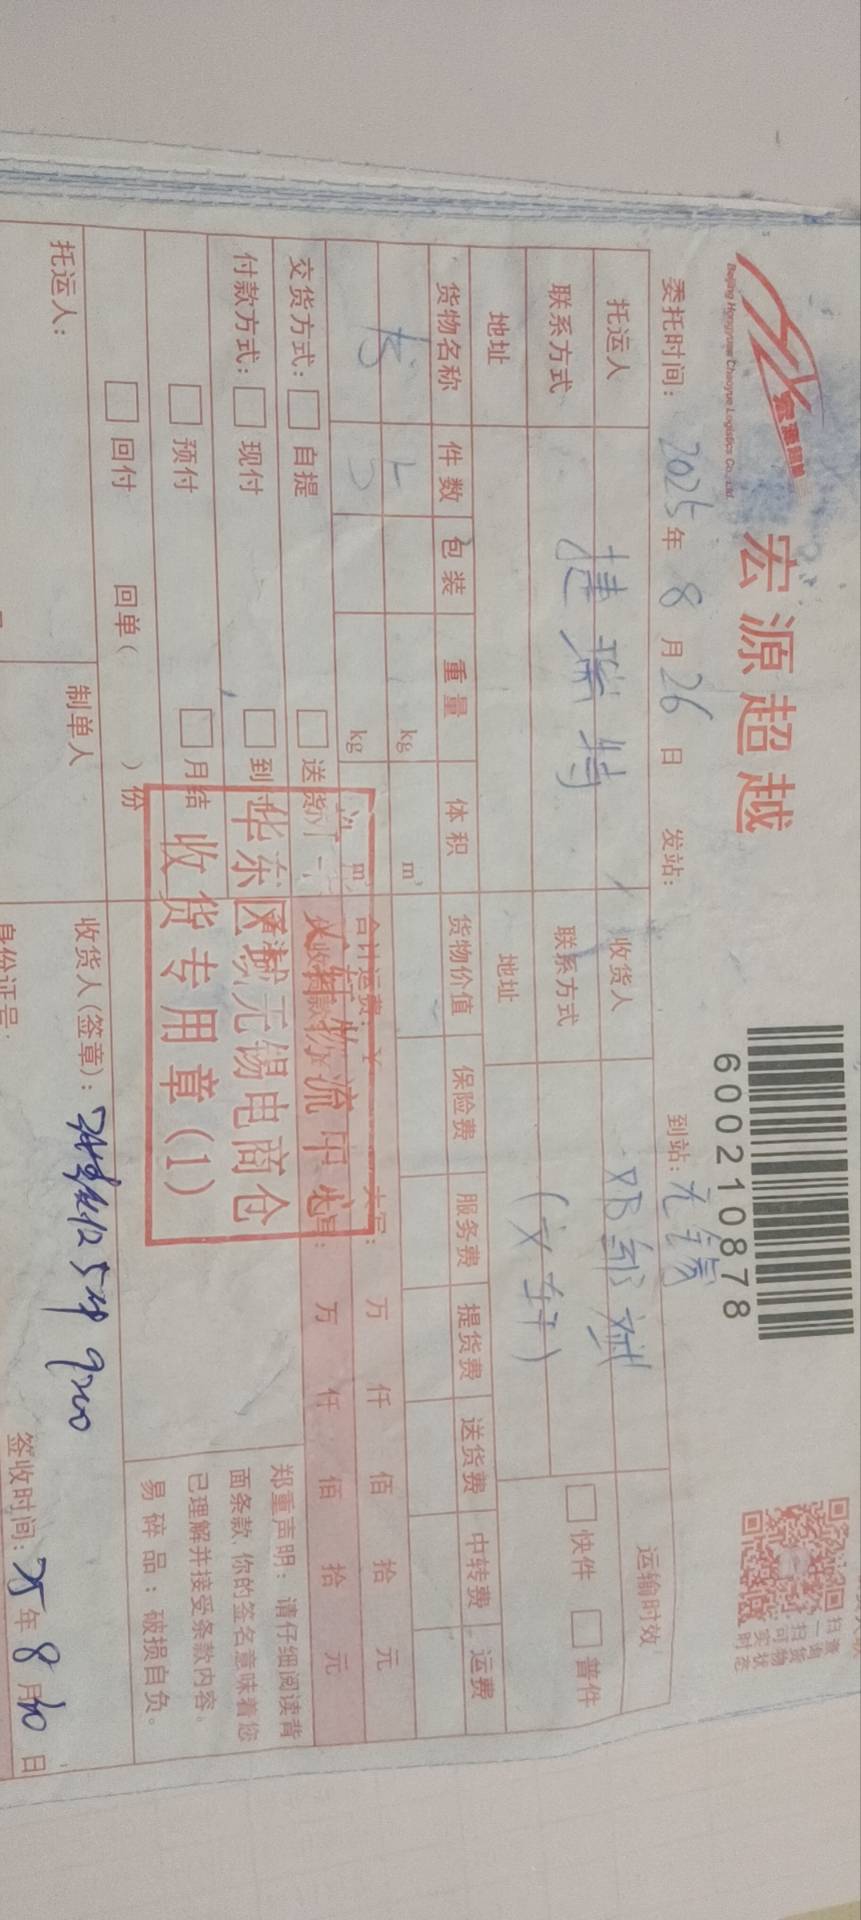 宏源超越
Beijing Hongyuan Chaoyue Logistics Co., Ltd
宏源超越
600210878
委托时间：2025年8月26日 发站： 到站：无锡
托运人 捷瑞特 收货人 邓邹斌 运输时效
联系方式 联系方式 (文轩) 快件 普件
地址 地址
货物名称 件数 包装 重量 体积 货物价值 保险费 服务费 提货费 送货费 中转费 运费
书 kg m³
kg m³ 合计运费：￥ 大写： 万 仟 佰 拾 元
交货方式： 自提 送货 万 仟 佰 拾 元
付款方式： 现付 到付
预付 月结
回付 回单（ ）份
文轩物流中心
华东区域无锡电商仓
收货专用章(1)
郑重声明：请仔细阅读背
面条款，你的签名意味着您
已理解并接受条款内容。
易碎品：破损自负。
托运人： 制单人 收货人(签章)：
身份证号： 签收时间：25年8月30日